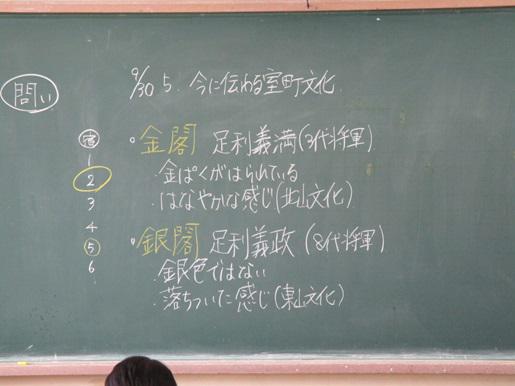 問い
9/30 5. 今に伝わる室町文化
・金閣 足利義満(3代将軍)
・金ぱくがはられている
・はなやかな感じ(北山文化)
・銀閣 足利義政(8代将軍)
・銀色ではない
・落ちついた感じ(東山文化)
1
2
3
4
5
6